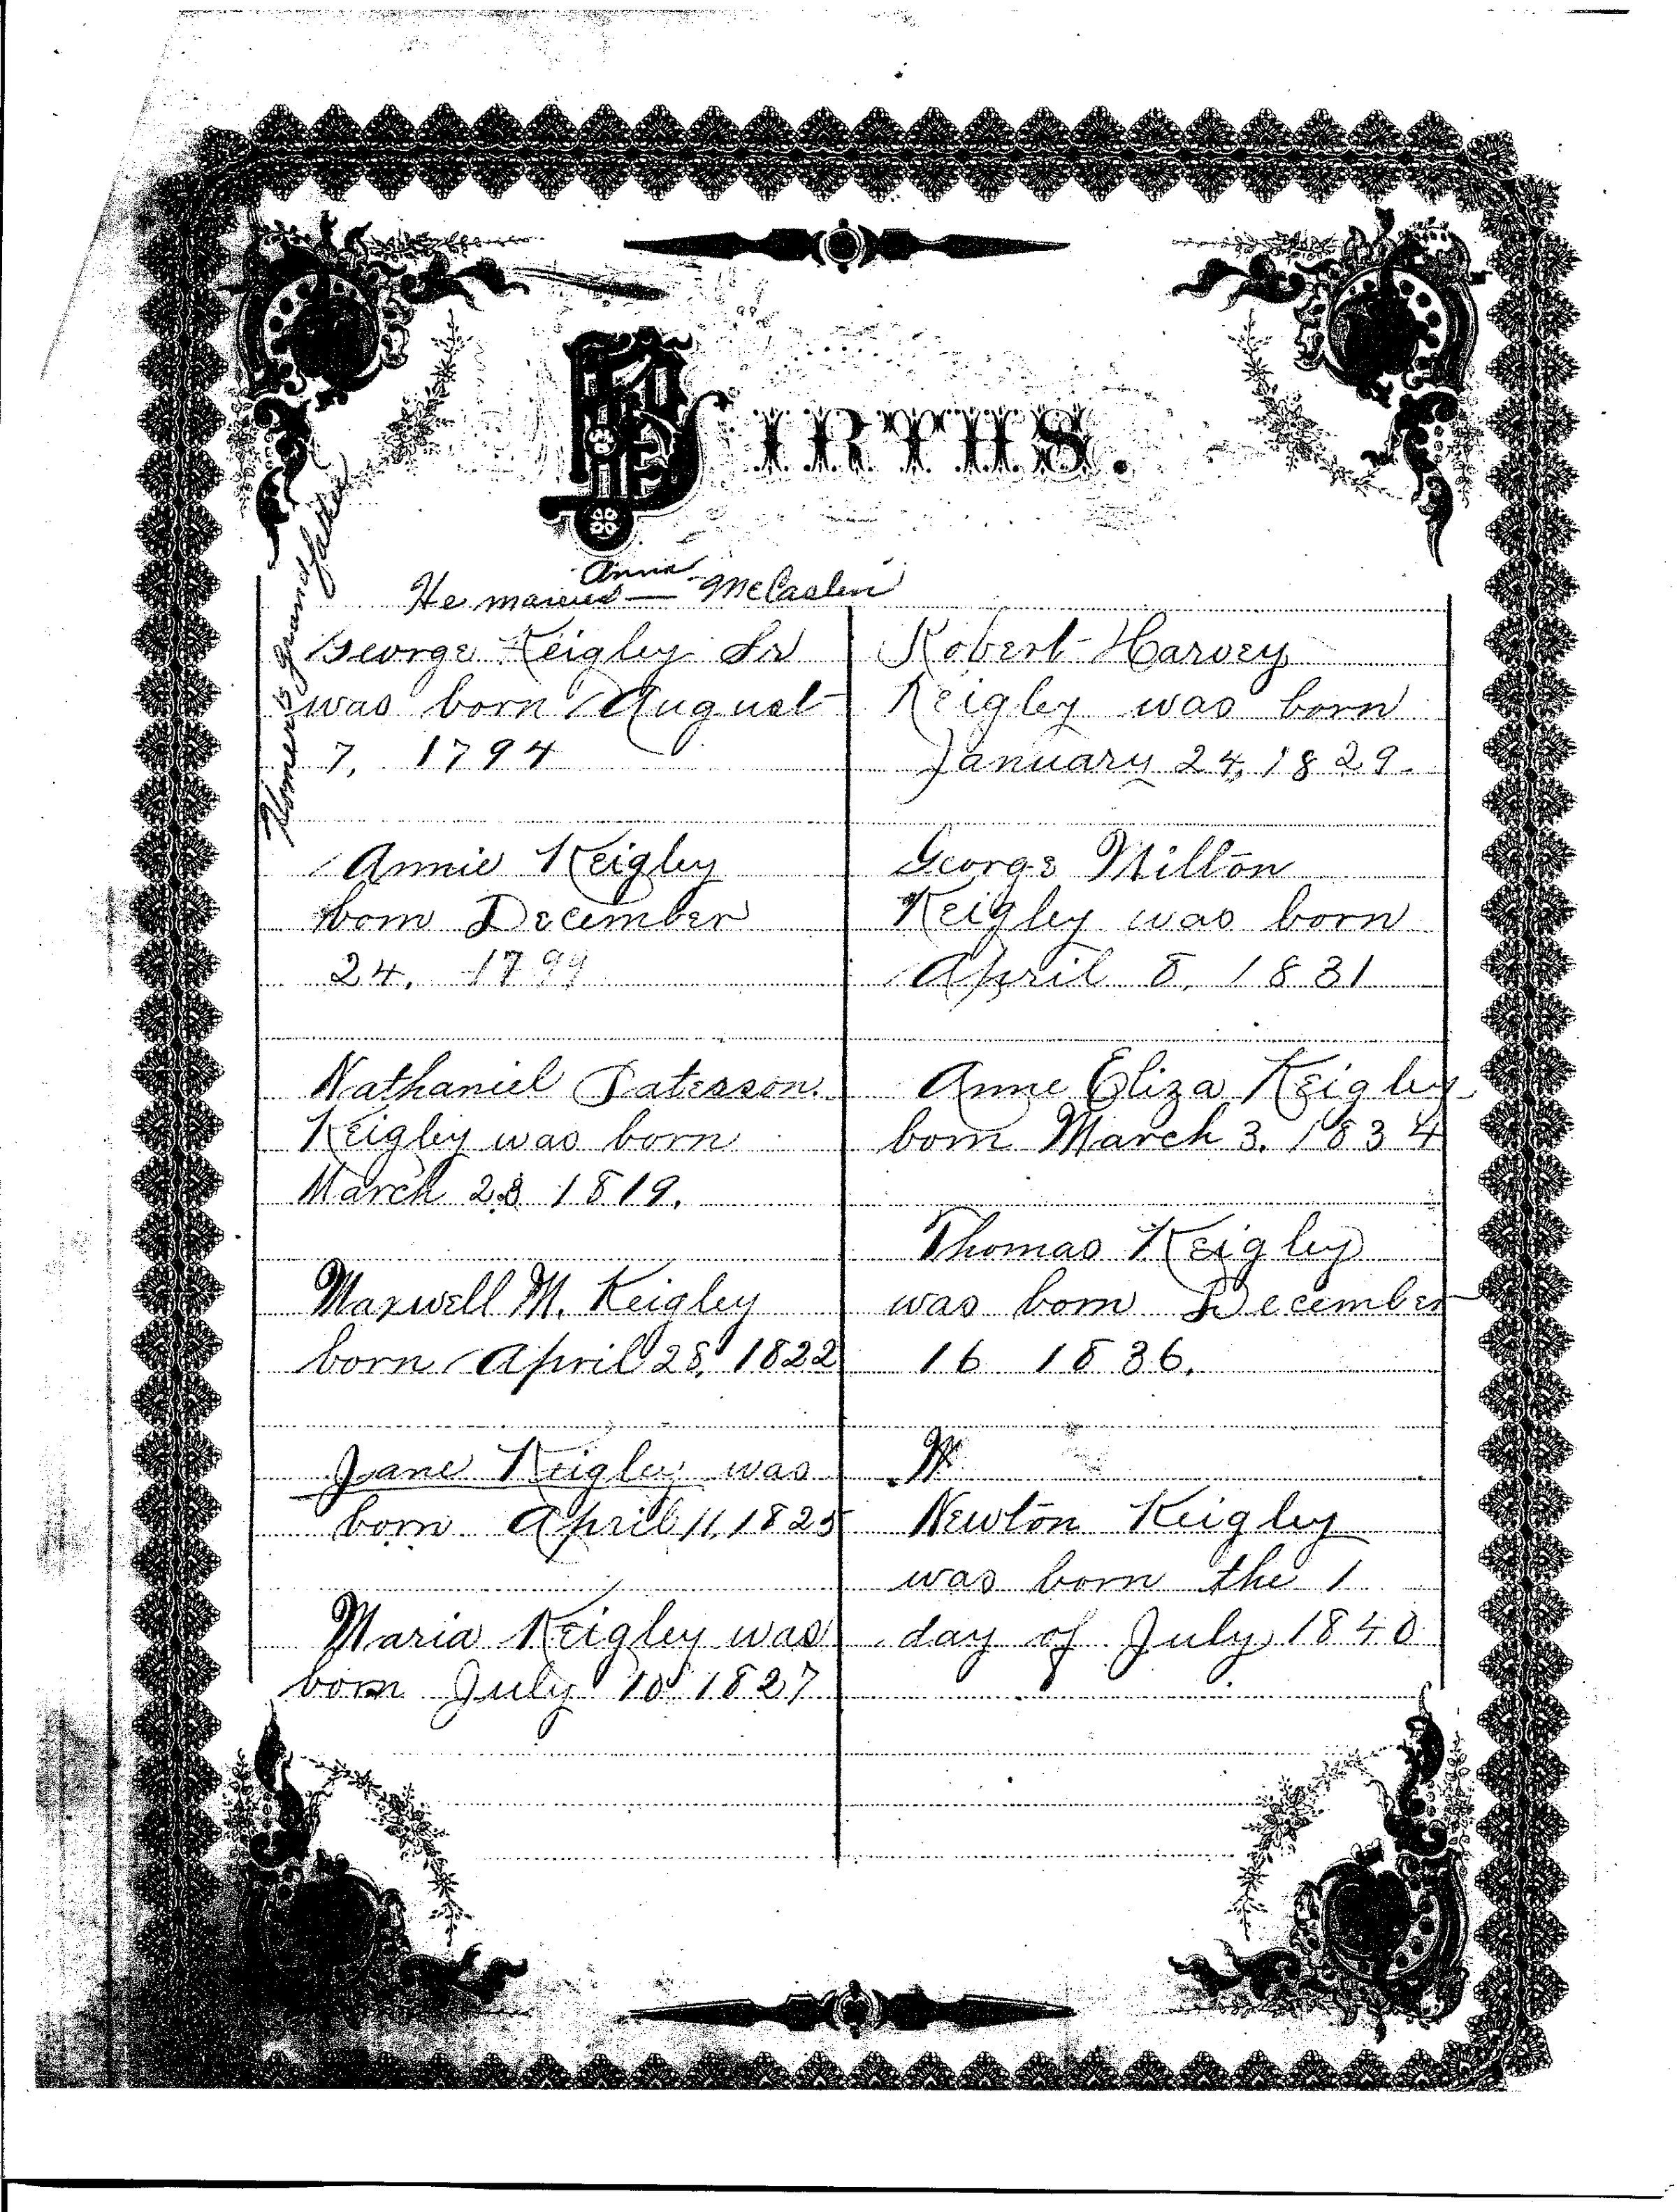 BIRTHS.
Homer's grandfather
Anna
He married — McCaslin
George Keigley Sr
was born August
7, 1794
Annie Keigley
born December
24, 1799
Nathaniel Paterson
Keigley was born
March 28 1819.
Maxwell M. Keigley
born April 28, 1822
Jane Keigley was
born April 11, 1825
Maria Keigley was
born July 10 1827
Robert Harvey
Keigley was born
January 24, 1829.
George Milton
Keigley was born
April 8, 1831
Anne Eliza Keigley
born March 3. 1834
Thomas Keigley
was born December
16 1836.
Newton Keigley
was born the 1
day of July 1840